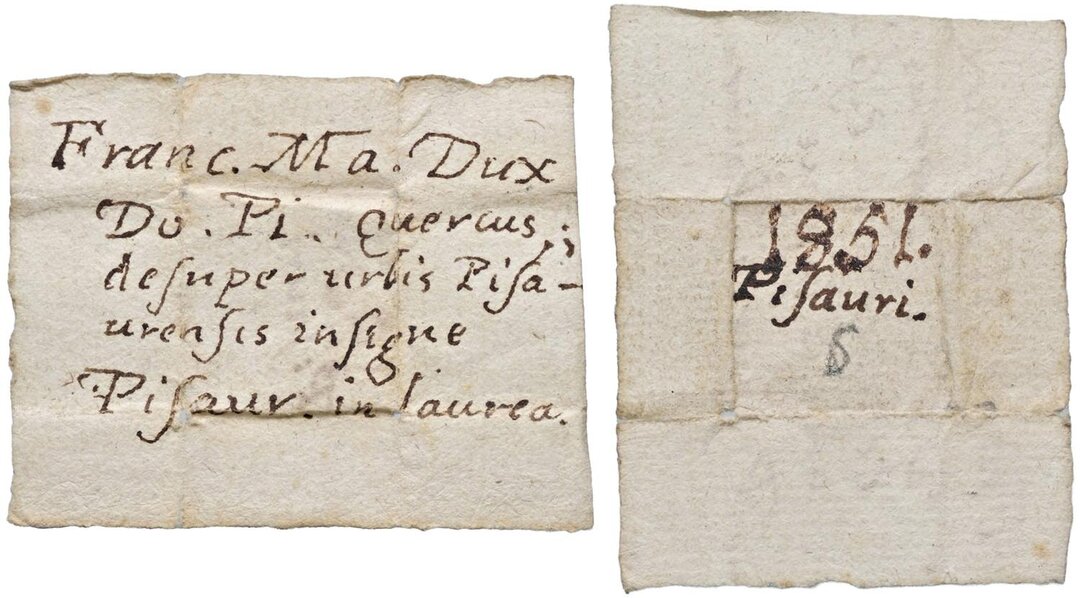 Franc. Ma. Dux
Do. Pi. Quercus;
desuper urbis Pisa-
urensis insigne
Pisaur. in laurea.
1851.
Pisauri.
8